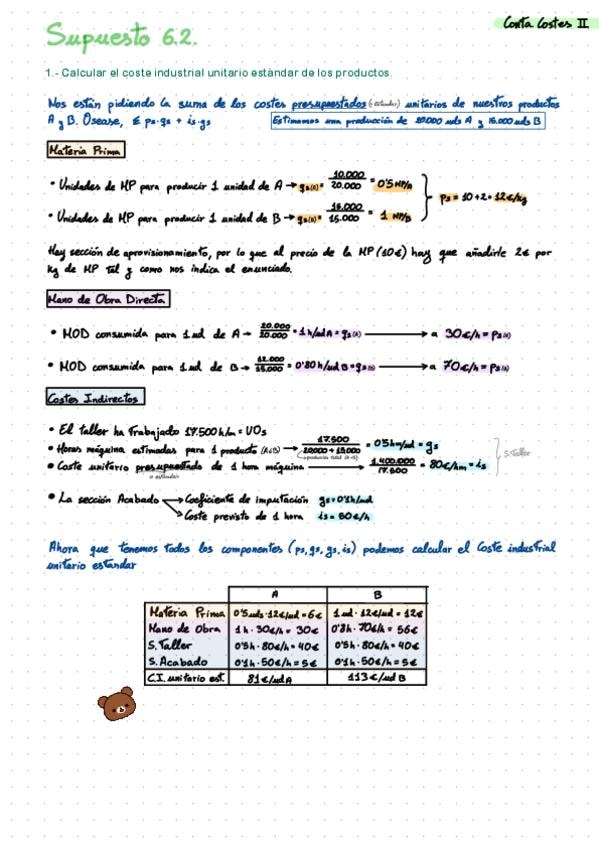 Conta Costes II
Supuesto 6.2.
1.- Calcular el coste industrial unitario estàndar de los productos.
Nos están pidiendo la suma de los costes presupuestados (estandar) unitarios de nuestros productos
A y B. Osease, Σ ps·qs + is·gs
Estimamos una producción de 20.000 uds A y 15.000 uds B
Materia Prima
• Unidades de MP para producir 1 unidad de A → qs(A) = 10.000 / 20.000 = 0'5 MP/A
• Unidades de MP para producir 1 unidad de B → qs(B) = 15.000 / 15.000 = 1 MP/B
ps = 10 + 2 = 12€/kg
Hay sección de aprovisionamiento, por lo que al precio de la MP (10€) hay que añadirle 2€ por
kg de MP tal y como nos indica el enunciado.
Mano de Obra Directa
• MOD consumida para 1 ud de A → 20.000 / 20.000 = 1 h/ud A = qs(A) → a 30€/h = ps(A)
• MOD consumida para 1 ud de B → 12.000 / 15.000 = 0'80 h/ud B = qs(B) → a 70€/h = ps(B)
Costes Indirectos
• El taller ha trabajado 17.500 h/m = UOs
• Horas máquina estimadas para 1 producto (A o B) → 17.500 / 20.000 + 15.000 = 0'5 hm/ud = gs
producción total (A+B)
• Coste unitario presupuestado de 1 hora máquina → 1.400.000 / 17.500 = 80€/hm = is
o estandar
S.Taller
• La sección Acabado → Coeficiente de imputación gs = 0'1h/ud
→ Coste previsto de 1 hora is = 50€/h
Ahora que tenemos todos los componentes (ps, qs, gs, is) podemos calcular el Coste industrial
unitario estandar
A B
Materia Prima 0'5uds·12€/ud = 6€ 1 ud·12€/ud = 12€
Mano de Obra 1h·30€/h = 30€ 0'8h·70€/h = 56€
S.Taller 0'5h·80€/h = 40€ 0'5h·80€/h = 40€
S.Acabado 0'1h·50€/h = 5€ 0'1h·50€/h = 5€
C.I. unitario est. 81€/ud A 113€/ud B